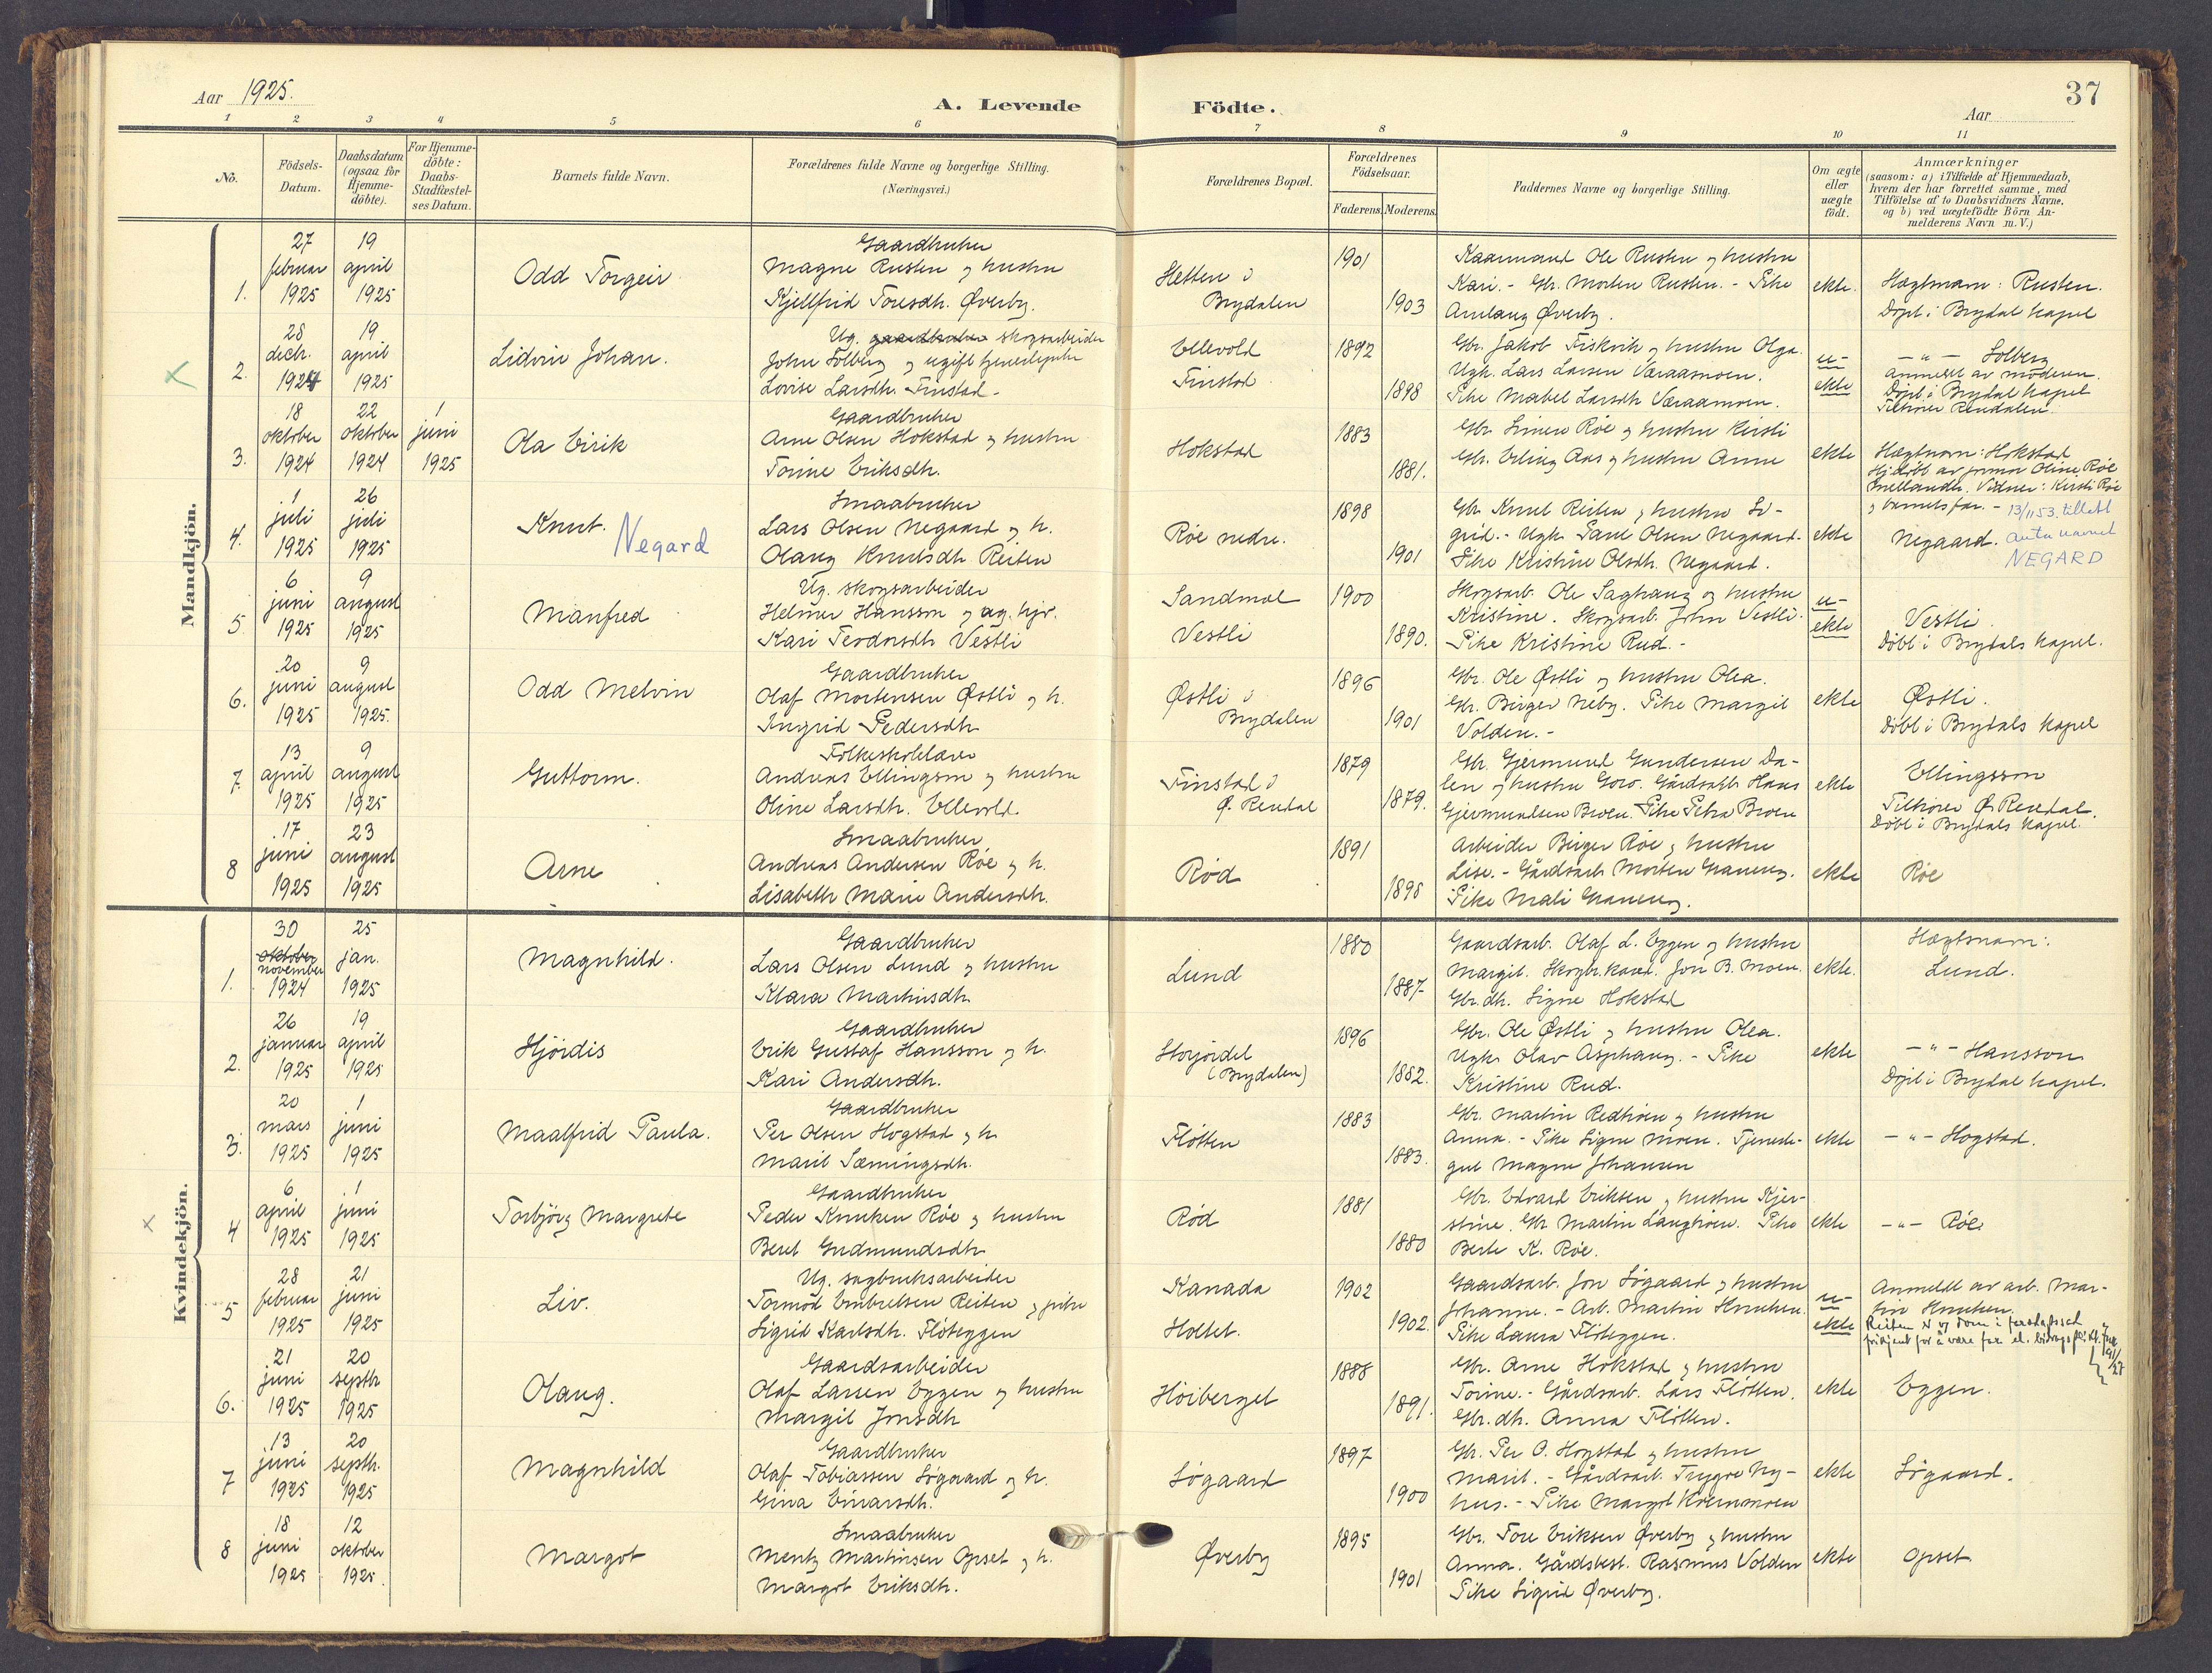 Aar 1925.
A. Levende Födte.
37
Aar
1 2 3 4 5 6 7 8 9 10 11
No.
Födsels-Datum.
Daabsdatum (ogsaa for Hjemme-döbte).
For Hjemme-döbte: Daabs-Stadfæstel-ses Datum.
Barnets fulde Navn.
Forældrenes fulde Navne og borgerlige Stilling. (Næringsvei.)
Forældrenes Bopæl.
Forældrenes Födselsaar.
Faderens. Moderens.
Faddernes Navne og borgerlige Stilling.
Om ægte eller uægte födt.
Anmærkninger
(saasom: a) i Tilfælde af Hjemmedaab, hvem der har forrettet samme, med Tilföielse af to Daabsvidners Navne, og b) ved uægtefödte Börn An-melderens Navn m. V.)
Mandkjön.
1.
27 februar 1925
19 april 1925
Odd Torgeir
Gaardbruker
Magne Rusten og hustru
Kjellfrid Toresdh. Øverby.
Hetten i
Brydalen
1901
1903
Kaarmand Ole Rusten og hustru
Kari. - Gbr. Morten Rusten. - Pike
Anlaug Øverby.
ekte.
Hægtnavn: Rusten.
Døpt i Brydal kapel
2.
28 decbr. 1924
19 april 1925
Lidvin Johan.
Ug. gaardbruker skogsarbeider
John Solberg og ugift tjenestepike
Lovise Larsdh. Finstad -
Ellevold
Finstad
1892
1898
Gbr. Jakob Fiskvik og hustru Olga.
Ugk. Lars Larsen Væraasmoen.
Pike Mabel Larsdh Væraamoen.
u-
ekte
- " - Solberg
anmeldt av moderen.
Døpt i Brydal kapel
Tilhører Rendalen.
3.
18 oktober 1924
22 oktober 1924
1 juni 1925
Ola Eirik
Gaardbruker
Arne Olsen Hokstad og hustru
Torine Eriksdh.
Hokstad
1883
1881.
Gbr. Simen Røe og hustru Kirsti
Gbr. Erling Aas og hustru Anne
ekte
Hægtnavn: Hokstad
Hj.døbt av jormor Oline Røe
Vidner: Kirsti Røe
og barnets far. -
4.
1 juli 1925
26 juli 1925
Knut. Negard
Smaabruker
Lars Olsen Negaard og h.
Olaug Knutsdh Reiten
Røe nedre.
1898
1901
Gbr. Knut Reiten og hustru Si-
grid. - Ugk. Paul Olsen Negaard.
Pike Kristine Olsdh. Negaard.
ekte
13/11 53. tillatt
Negaard. anta navnet
NEGARD
5.
6 juni 1925
9 august 1925
Manfred
Ug. skogsarbeider
Helmer Hansson og ug. hjv.
Kari Teodorsdh Vestli
Sandmoe
Vestli
1900
1890.
Skogsarb. Ole Saghaug og hustru
Kristine. Skogsarb. John Vestli.
Pike Kristine Rud. -
u-
ekte
Vestli.
Døbt i Brydals kapel.
6.
20 juni 1925
9 august 1925.
Odd Melvin
Gaardbruker
Olaf Mortensen Østli og h.
Ingrid Pedersdh
Østli i
Brydalen
1896
1901
Gbr. Ole Østli og hustru Olea.
Gbr. Birger Neby. Pike Margit
Volden. -
ekte
Østli.
Døbt i Brydals kapel
7.
13 april 1925
9 august 1925
Guttorm.
Folkeskolelærer
Andreas Ellingson og hustru
Oline Larsdh. Ellevold.
Finstad i
Ø. Rendal
1879
1879.
Gbr. Gjermund Gundersen Da-
len og hustru Goro. Gårdsarb. Hans
Gjermundsen Broen. Pike Petra Broen
ekte
Ellingsson
Tilhører Ø. Rendal.
Døbt i Brydals kapel.
8
17 juni 1925
23 august 1925
Arne
Smaabruker
Andreas Andersen Røe og h.
Lisabeth Marie Andersdh.
Rød
1891
1898
Arbeider Birger Røe og hustru
Lise. - Gårdsarb. Morten
Pike Mali
ekte
Røe
Kvindekjön.
1.
30 oktober november 1924
25 jan. 1925
Magnhild.
Gaardbruker
Lars Olsen Lund og hustru
Klara Martinsdh
Lund
1880
1887
Gaardsarb. Olaf L. Eggen og hustru
Margit. Jon B. Moen.
Gbr.dh. Signe Hokstad
ekte.
Hægtnavn:
Lund.
2.
26 januar 1925
19 april 1925
Hjördis
Gaardbruker
Erik Gustaf Hansson og h.
Kari Andersdh.
Storjordet
(Brydalen)
1896
1882.
Gbr. Ole Østli og hustru Olea.
Ugk. Olav Asphaug. - Pike
Kristine Rud.
ekte
- " - Hansson
Døpt i Brydal kapel.
3.
20 mars 1925
1 juni 1925
Maalfrid Paula.
Gaardbruker
Per Olsen Hogstad og h
Marit Sæmingsdh.
Fløtten
1883
1883.
Gbr. Martin Redhoen og hustru
Anna. - Pike Signe Moen. Tjeneste-
gut Magne Johansen
ekte
- " - Hogstad.
4
6 april 1925
1 juni 1925
Torbjörg Margrete
Gaardbruker
Peder Knutsen Røe og hustru
Beret Gudmundsdh
Rød
1881
1880
Gbr. Edvard Eriksen og hustru Kjer-
stine. Gbr. Martin Langhoen. Pike
Berte K. Røe.
ekte
- " - Røe
5
28 februar 1925
21 juni 1925
Liv.
Ug. sagbruksarbeider
Tormod Embretsen Reiten og pike
Sigrid Karlsdh. Fløteggen
Kanada
Holtet.
1902
1902.
Gaardsarb. Jon Søgaard og hustru
Johanne. - Arb. Martin Knutsen.
Pike Laura Fløteggen.
u-
ekte
Anmeldt av arb. Mar-
tin Knutsen.
Reiten er ved dom i farskapssak
frikjent for å være far el. bidragspliktig.
6.
21 juni 1925
20 septbr 1925
Olaug.
Gaardsarbeider
Olaf Larsen Eggen og hustru
Margit Jonsdh
Høiberget
1888
1891.
Gbr. Arne Hokstad og hustru
Torine. - Gårdsarb. Lars Fløtten.
Gbr.dh. Anna Fløtten.
ekte
Eggen.
7
13 juni 1925
20 septbr. 1925
Magnhild
Gaardbruker
Olaf Tobiassen Søgaard og h.
Gina Einarsdh.
Søgaard
1897
1900
Gbr. Per O. Hogstad og hustru
Marit. - Gårdsarb. Trygve Ny-
hus. - Pike Margot Kvernmoen
ekte
Søgaard.
8
18 juni 1925
12 oktober 1925.
Margot
Smaabruker
Mentz Martinsen Opset og h.
Margot Eriksdh.
Øverby
1895
1901
Gbr. Tore Eriksen Øverby og hustru
Anna. Gårdsbest. Rasmus Volden
Pike Sigrid Øverby.
ekte
Opset